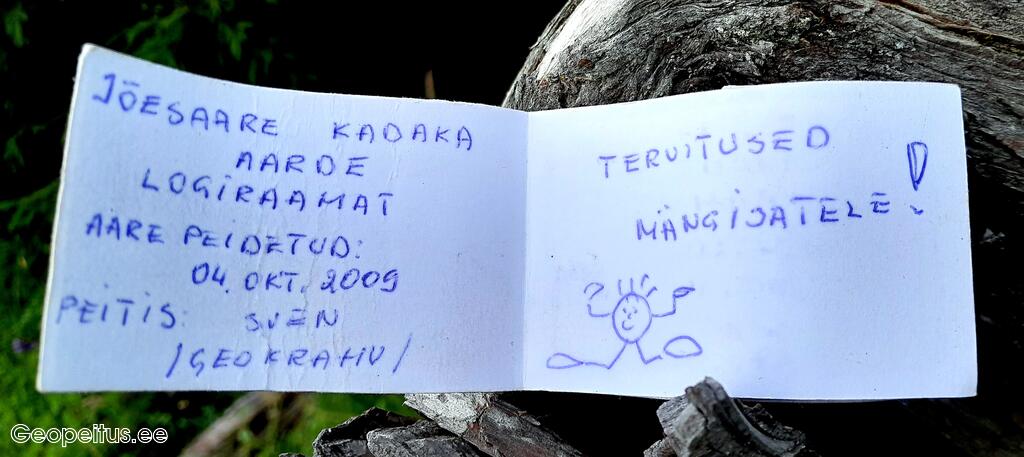 JÕESAARE KADAKA
AARDE
LOGIRAAMAT
AARE PEIDETUD:
04. OKT. 2009
PEITIS: SVEN
/GEOKRATIV/
TERVITUSED
MÄNGIJATELE!
Geopeitus.ee